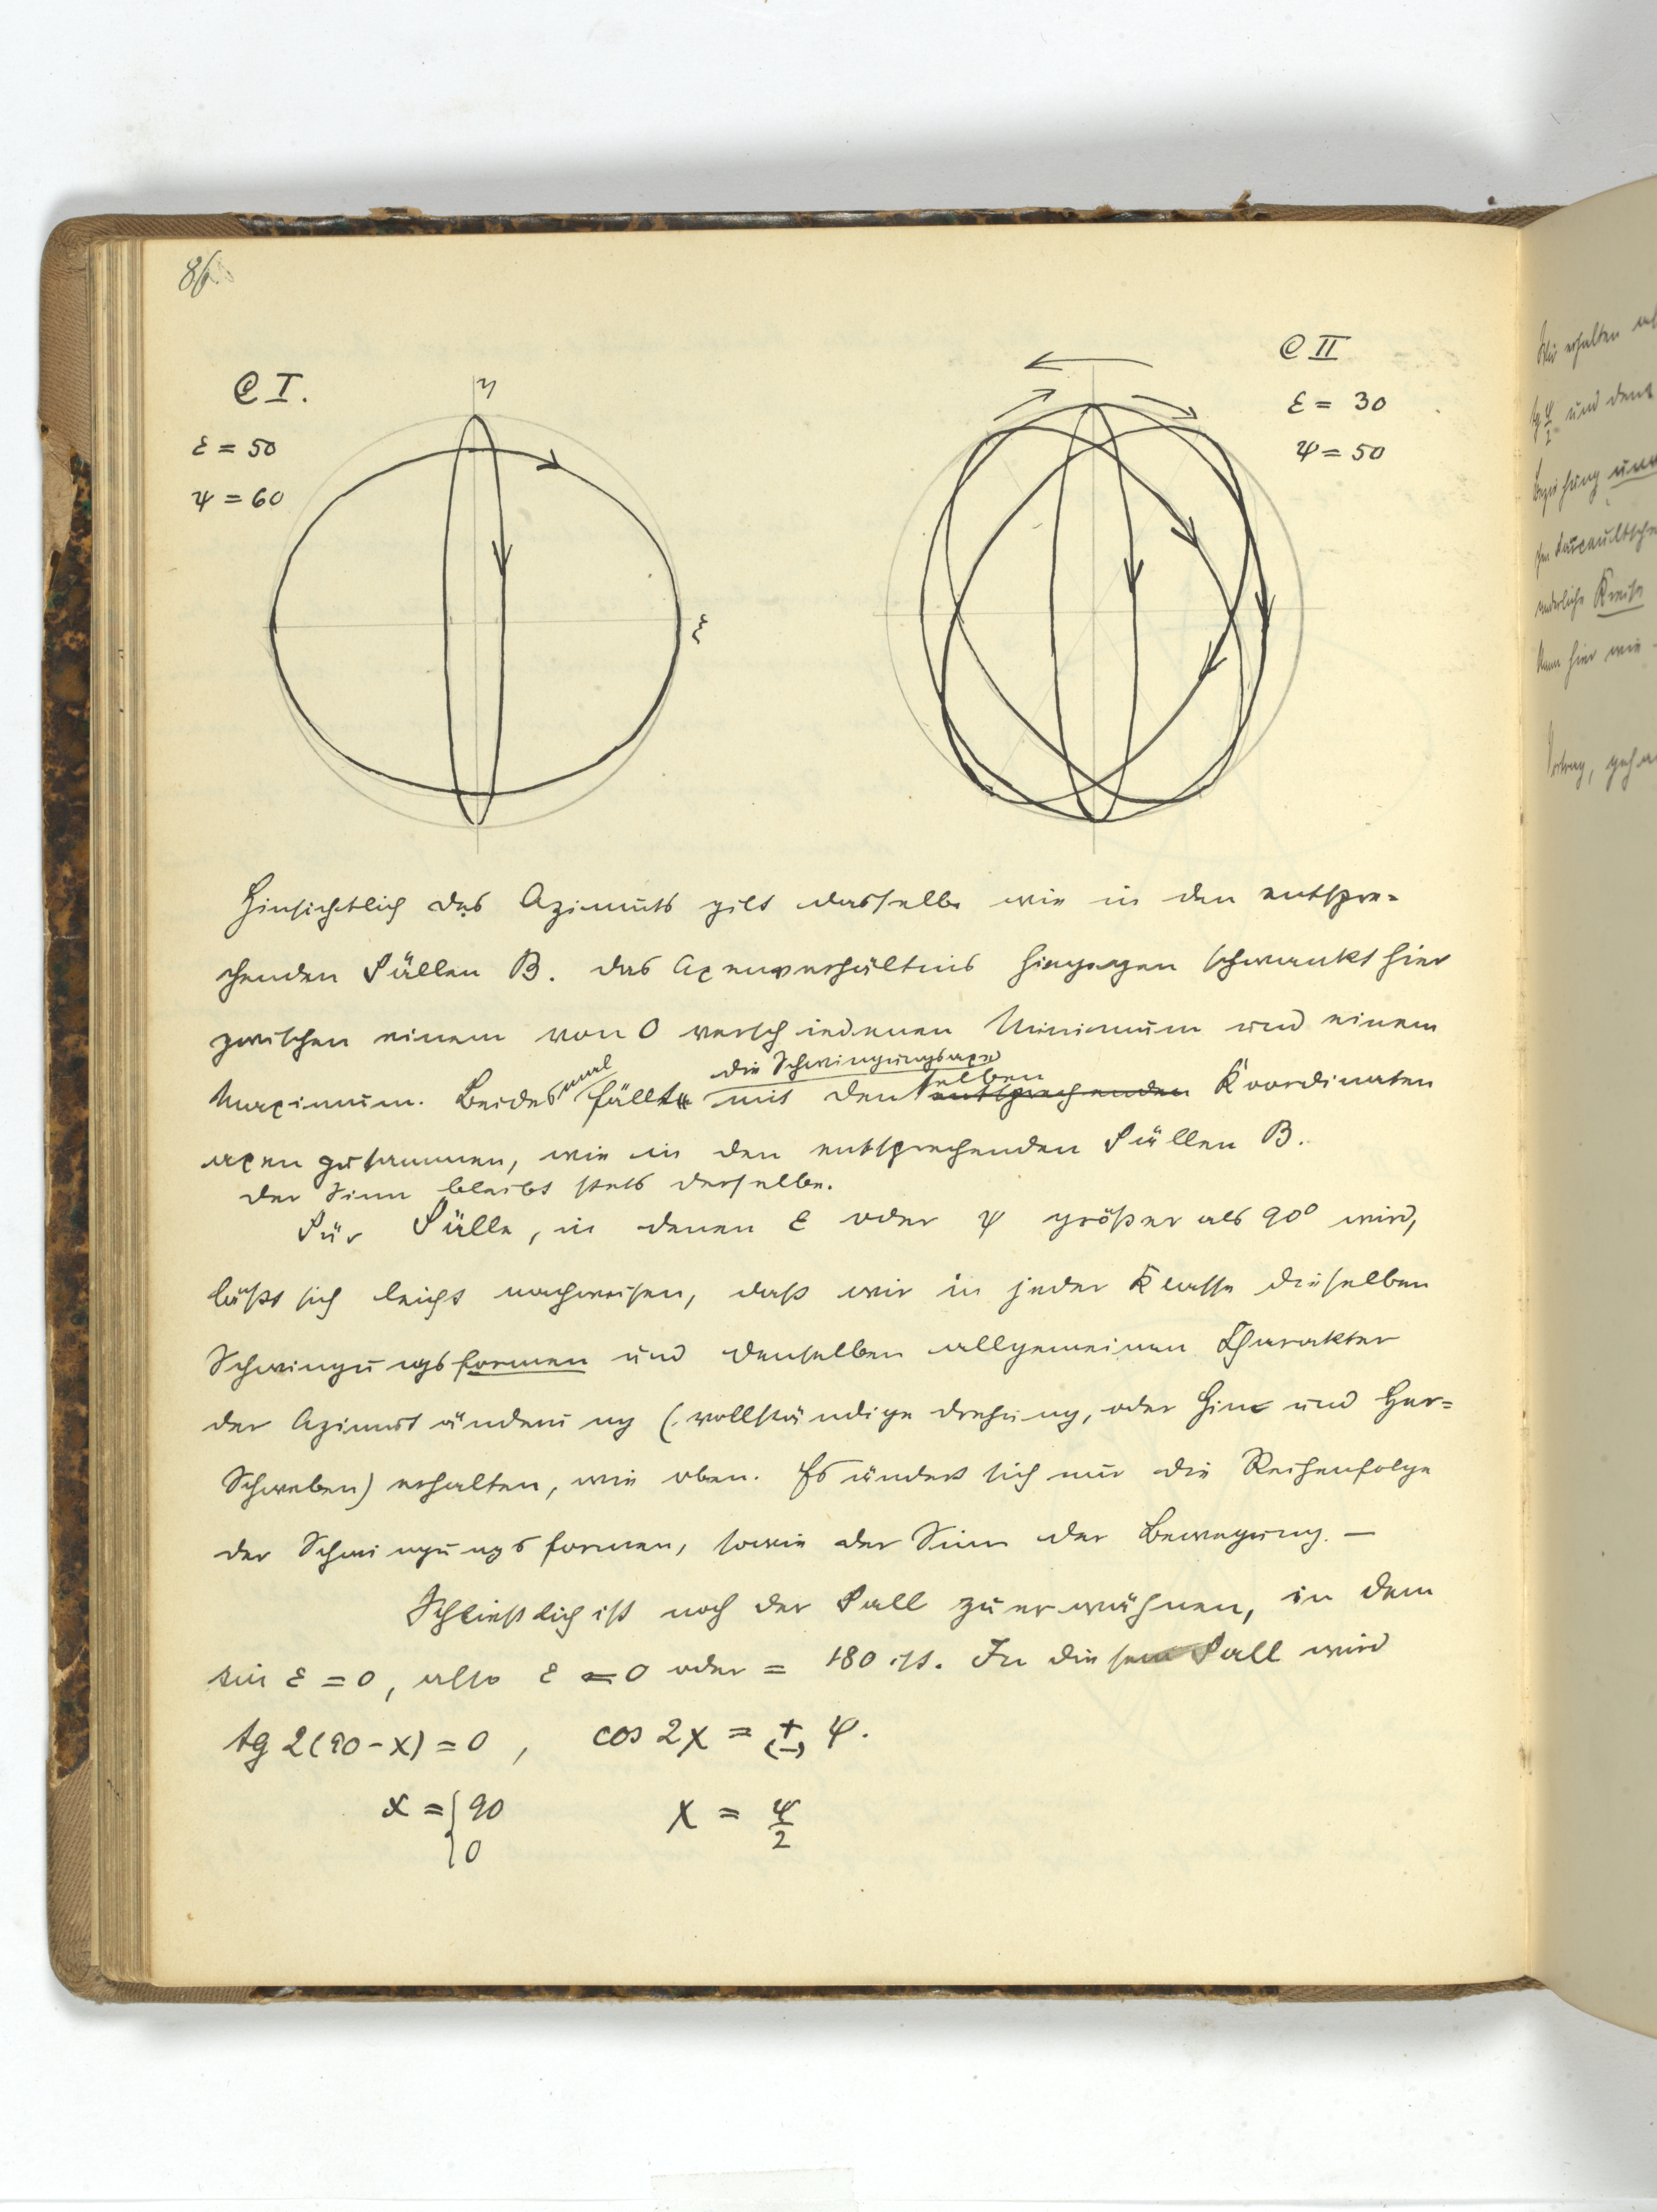 86.
C I.
ε = 50
ψ = 60
η
ξ
C II
ε = 30
ψ = 50
Hinsichtlich des Azimuts gilt dasselbe wie in den entspre-
chenden Fällen B. Das Axenverhältnis hingegen schwankt hier
zwischen einem von 0 verschiedenen Minimum und einem
mal die Schwingungsaxe
selben
Maximum. Beides fällt mit den entsprechenden Koordinaten
axen zusammen, wie in den entsprechenden Fällen B.
Der Sinn bleibt stets derselbe.
Für Fälle, in denen ε oder ψ größer als 90° wird,
läßt sich leicht nachweisen, daß wir in jeder Klasse dieselben
Schwingungsformen und denselben allgemeinen Charakter
der Azimutänderung (vollständige Drehung, oder Hin und Her-
Schweben) erhalten, wie oben. Es ändert sich nur die Reihenfolge
der Schwingungsformen, sowie der Sinn der Bewegung. —
Schließlich ist noch der Fall zu erwähnen, in dem
sin ε = 0, also ε = 0 oder = 180 ist. In diesem Fall wird
tg 2(90-x) = 0, cos 2χ = + (-) ψ.
x = { 90 χ = ψ/2
0
Wir erhalten
und dem
Beziehung
Kreise
kann hier wie
Vortrag,